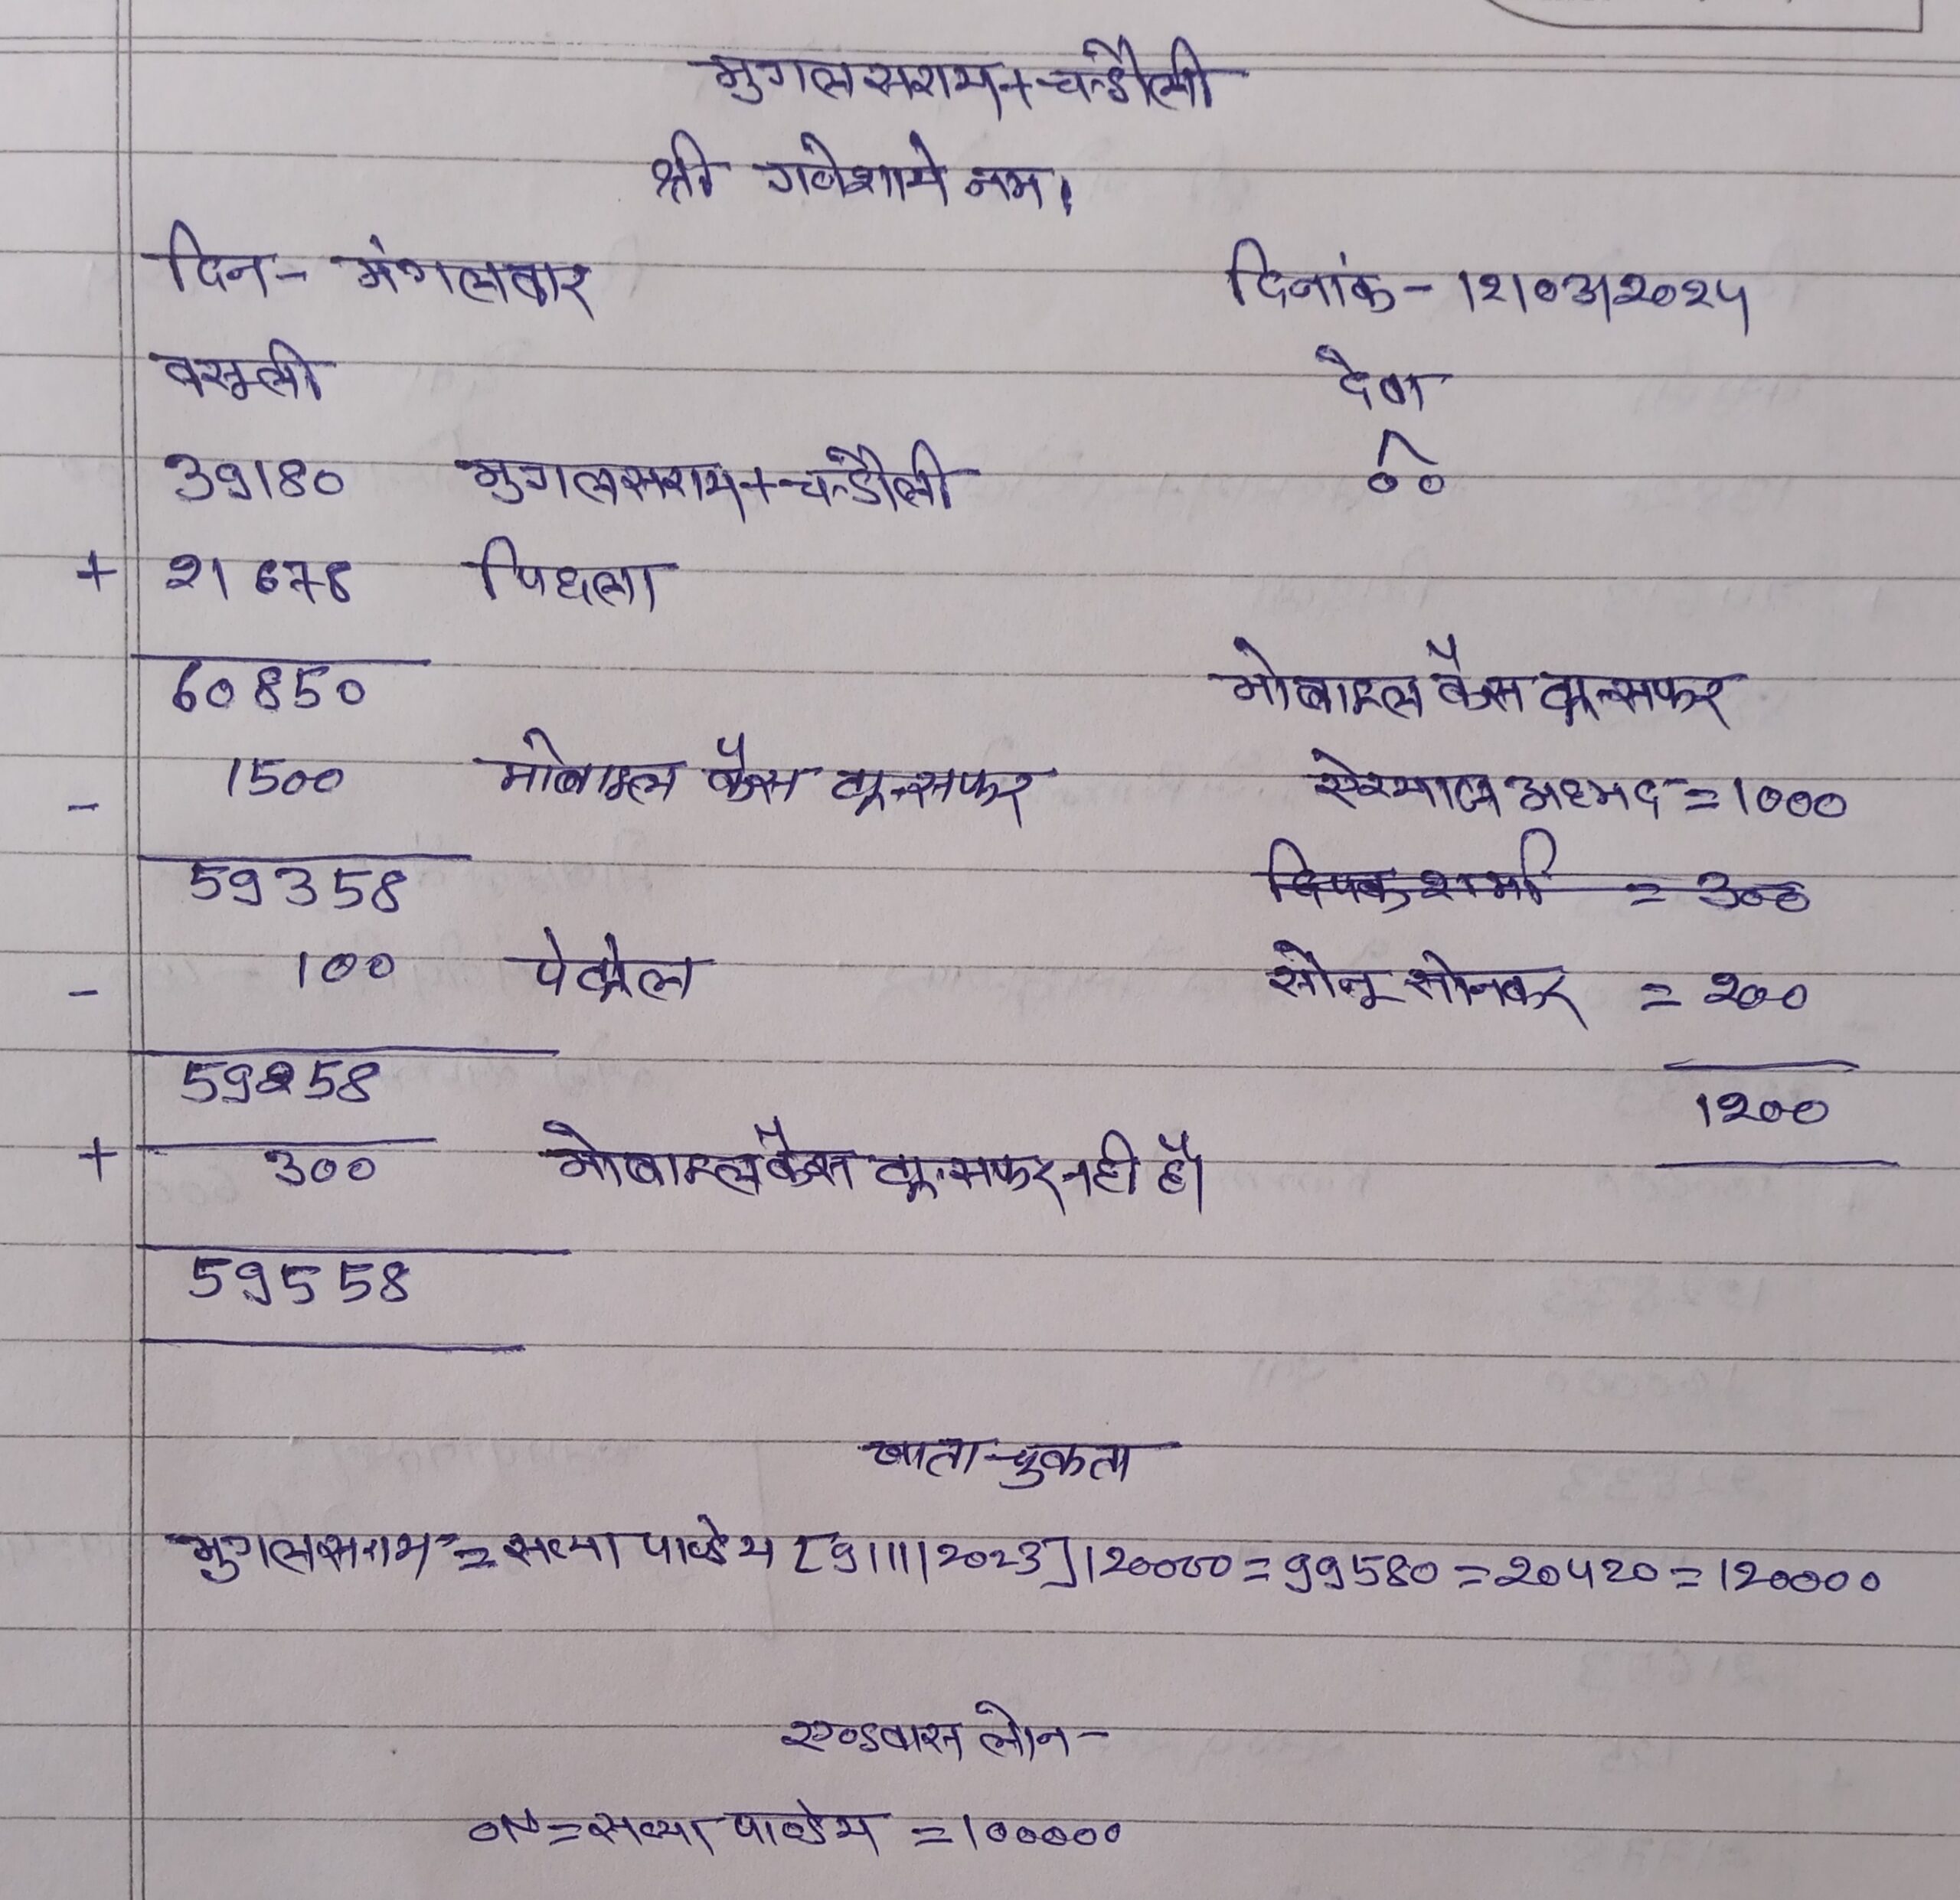 मुगलसराय+चन्डौली
श्री गणेशाये नम।
दिन- मंगलवार दिनांक-12/03/2024
वसूली देवा
39180 मुगलसराय+चन्डौली 00
+ 21678 पिछला
60850 मोबाइल कैस ट्रान्सफर
- 1500 मोबाइल कैस ट्रान्सफर अहमद=1000
59358 दिपक शर्मा = 300
- 100 पेट्रोल सोनू सोनकर = 200
59258 1200
+ 300 मोबाइल कैस ट्रान्सफर नही है।
59558
खाता-चुकता
मुगलसराय = सत्या पाण्डेय [9/11/2023]120000=99580=20420=120000
एण्डवास लोन-
ON=सत्या पाण्डेय =100000